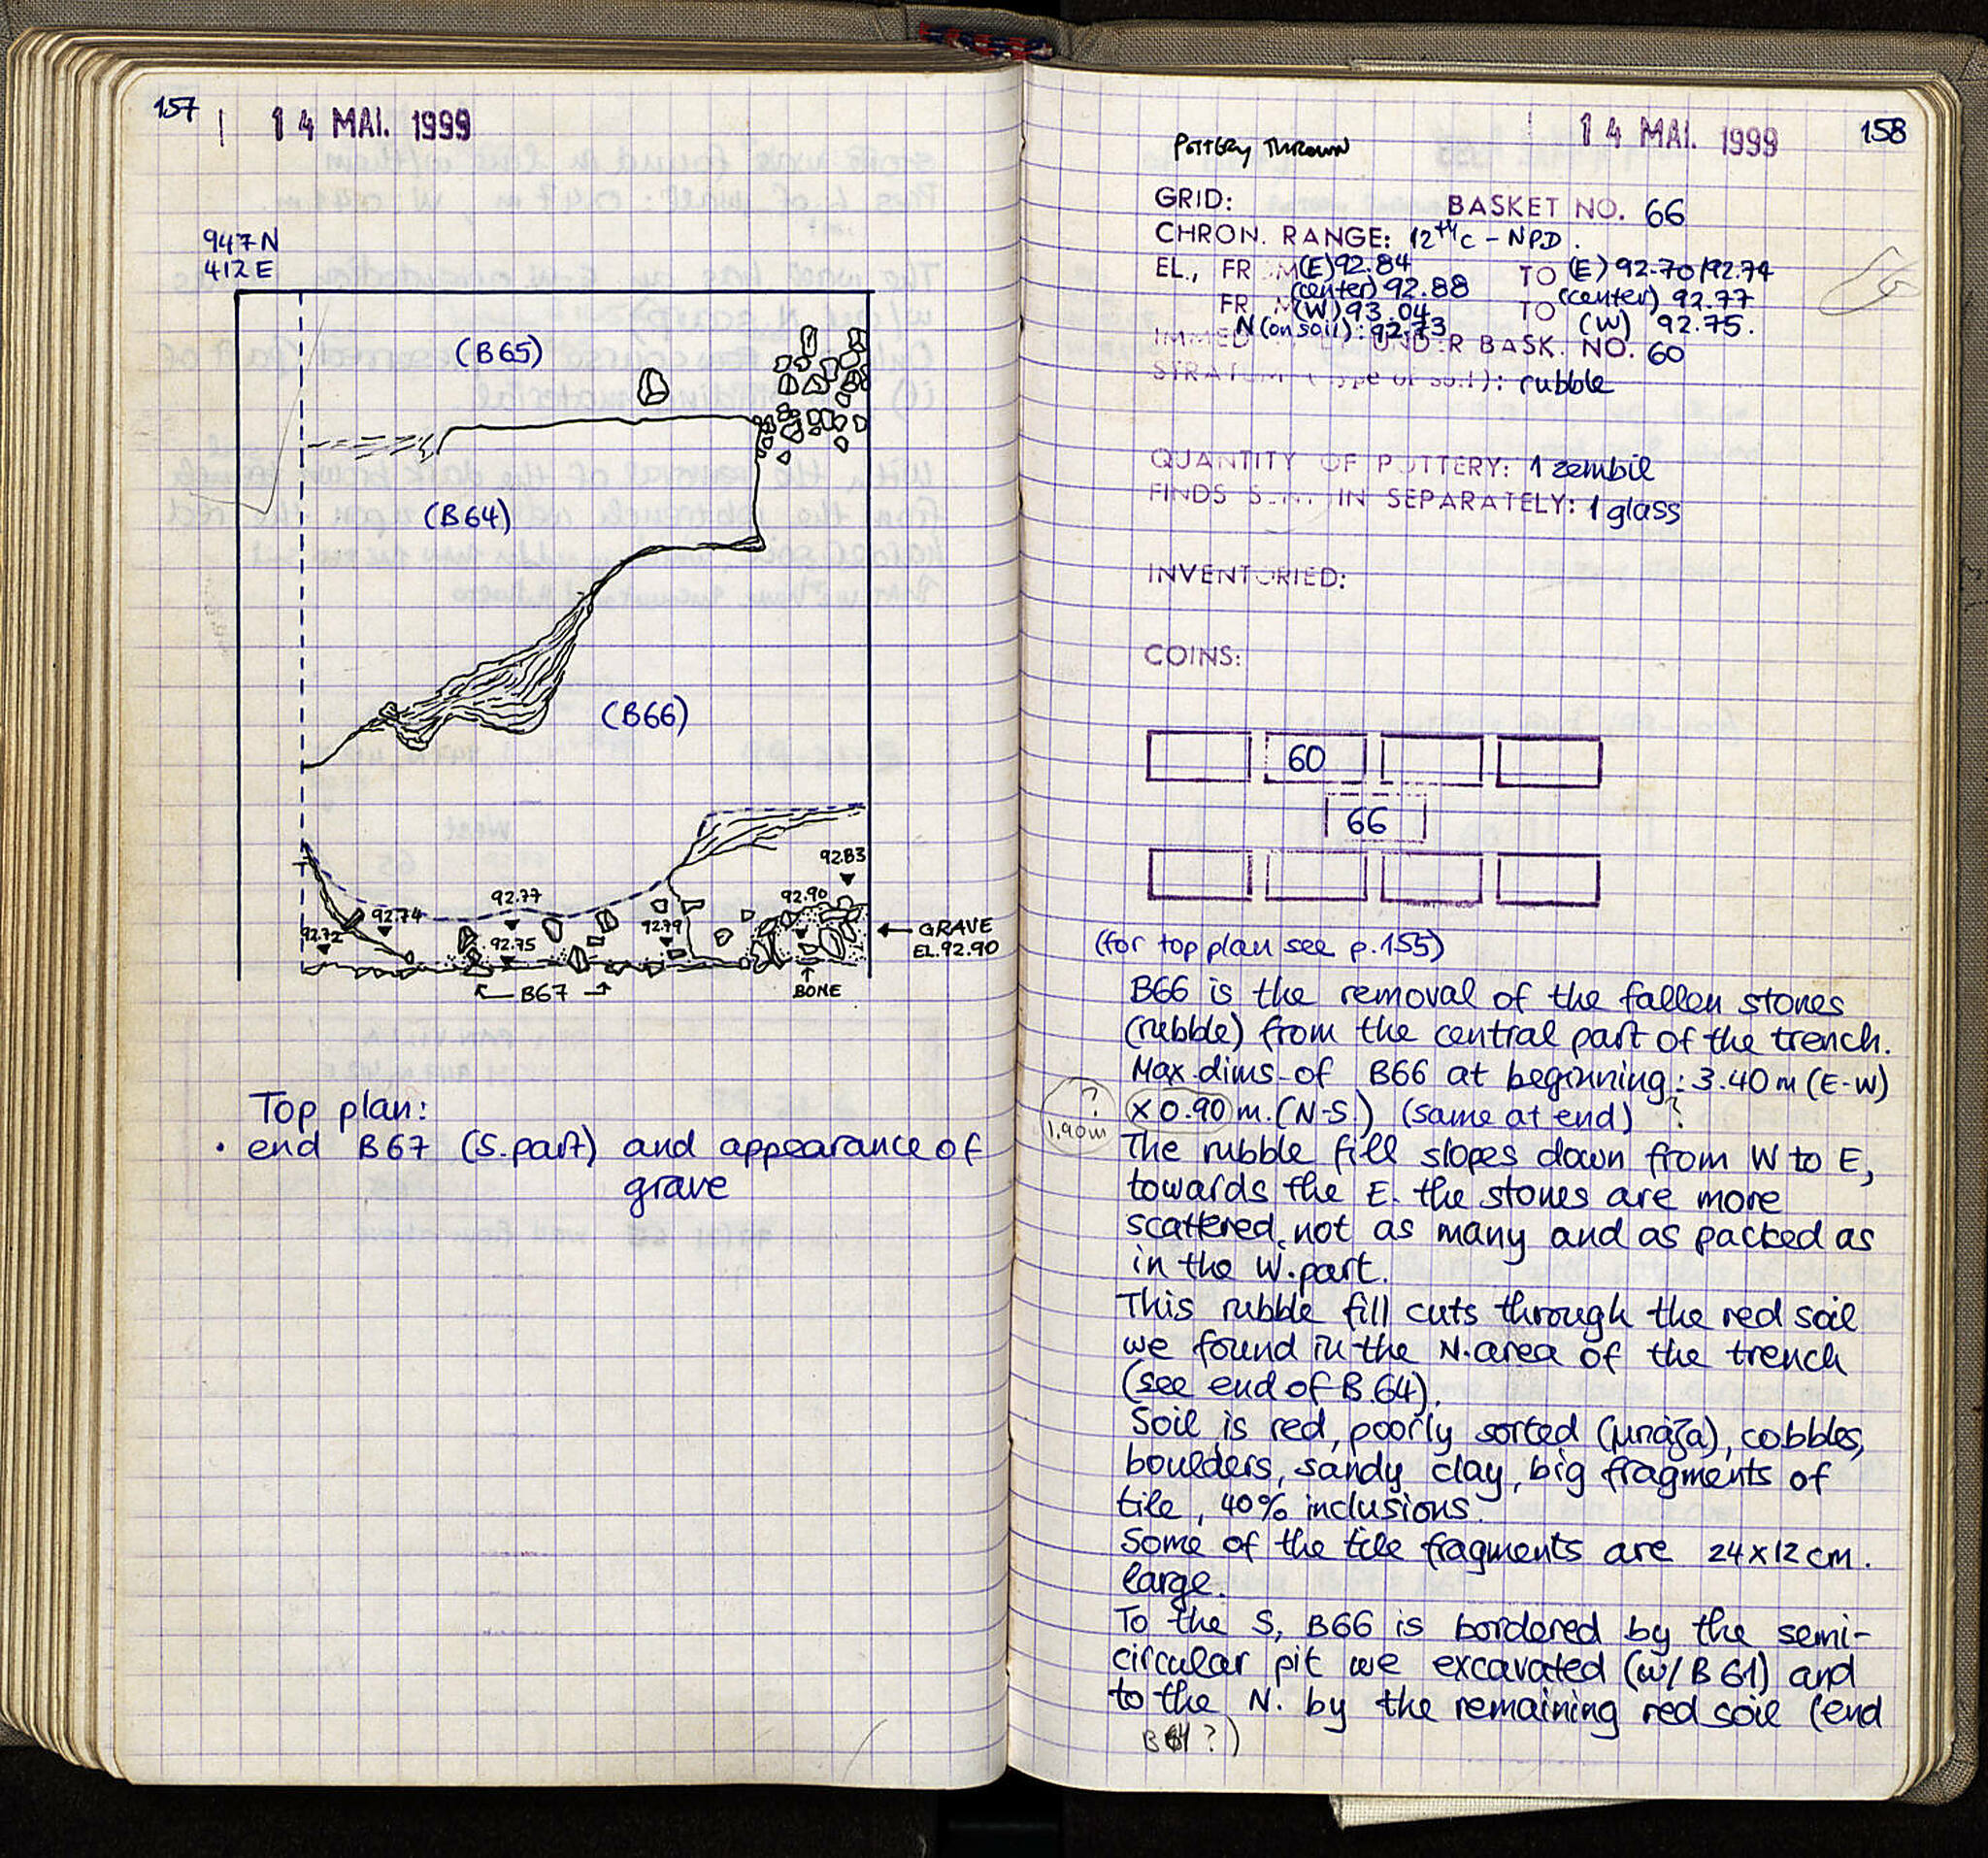 157
14 MAI. 1999
947N
412E
(B65)
(B64)
(B66)
9283
92.77
92.90
92.74
92.72
92.75
92.79
GRAVE
EL.92.90
B67
BONE
Top plan:
• end B67 (S.part) and appearance of
grave
14 MAI. 1999
158
POTTERY THROWN
GRID: BASKET NO. 66
CHRON. RANGE: 12th c - NPD.
EL., FR M (E) 92.84 TO (E) 92.70/92.74
(center) 92.88 (center) 92.77
FR M (W) 93.04 TO (W) 92.75.
N (on soil): 92.73
IMMED UNDER BASK. NO. 60
STRATUM (type of soil): rubble
QUANTITY OF POTTERY: 1 zembil
FINDS S IN SEPARATELY: 1 glass
INVENTORIED:
COINS:
60
66
(for top plan see p.155)
B66 is the removal of the fallen stones
(rubble) from the central part of the trench.
Max dims of B66 at beginning: 3.40m (E-W)
x 0.90 m. (N-S.) (same at end) ?
?
1.90m
The rubble fill slopes down from W to E,
towards the E. the stones are more
scattered, not as many and as packed as
in the W. part.
This rubble fill cuts through the red soil
we found in the N. area of the trench
(see end of B.64).
Soil is red, poorly sorted (μπάζα), cobbles,
boulders, sandy clay, big fragments of
tile, 40% inclusions.
Some of the tile fragments are 24x12 cm.
large.
To the S, B66 is bordered by the semi-
circular pit we excavated (w/ B61) and
to the N. by the remaining red soil (end
B 64?)